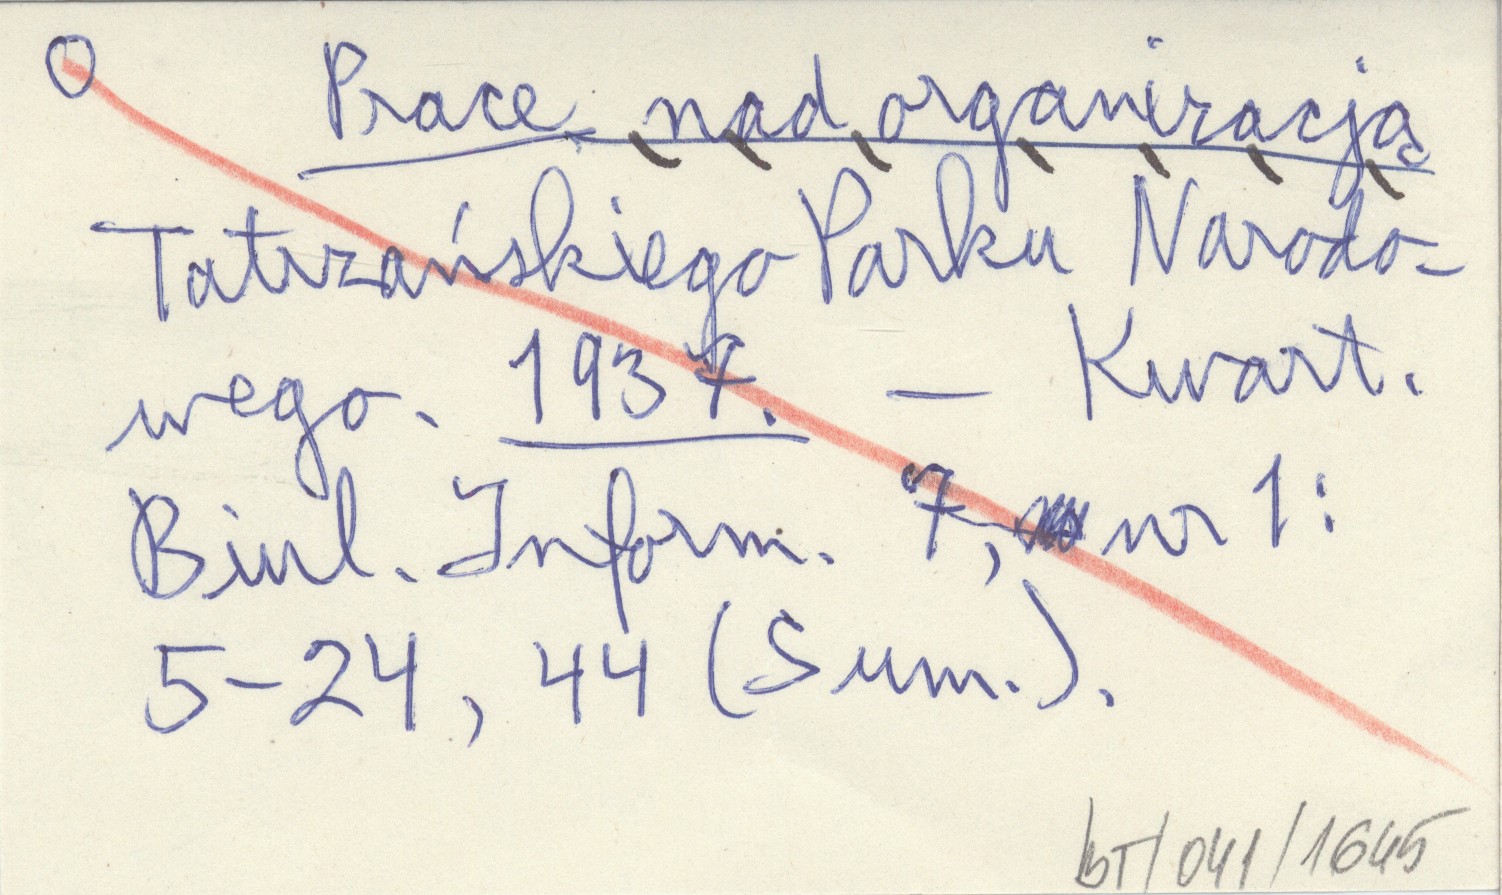 O Prace nad organizacją
Tatrzańskiego Parku Narodo-
wego. 1937. — Kwart.
Biul. Inform. 7, nr 1:
5-24, 44 (Sum.).
bT/041/1645